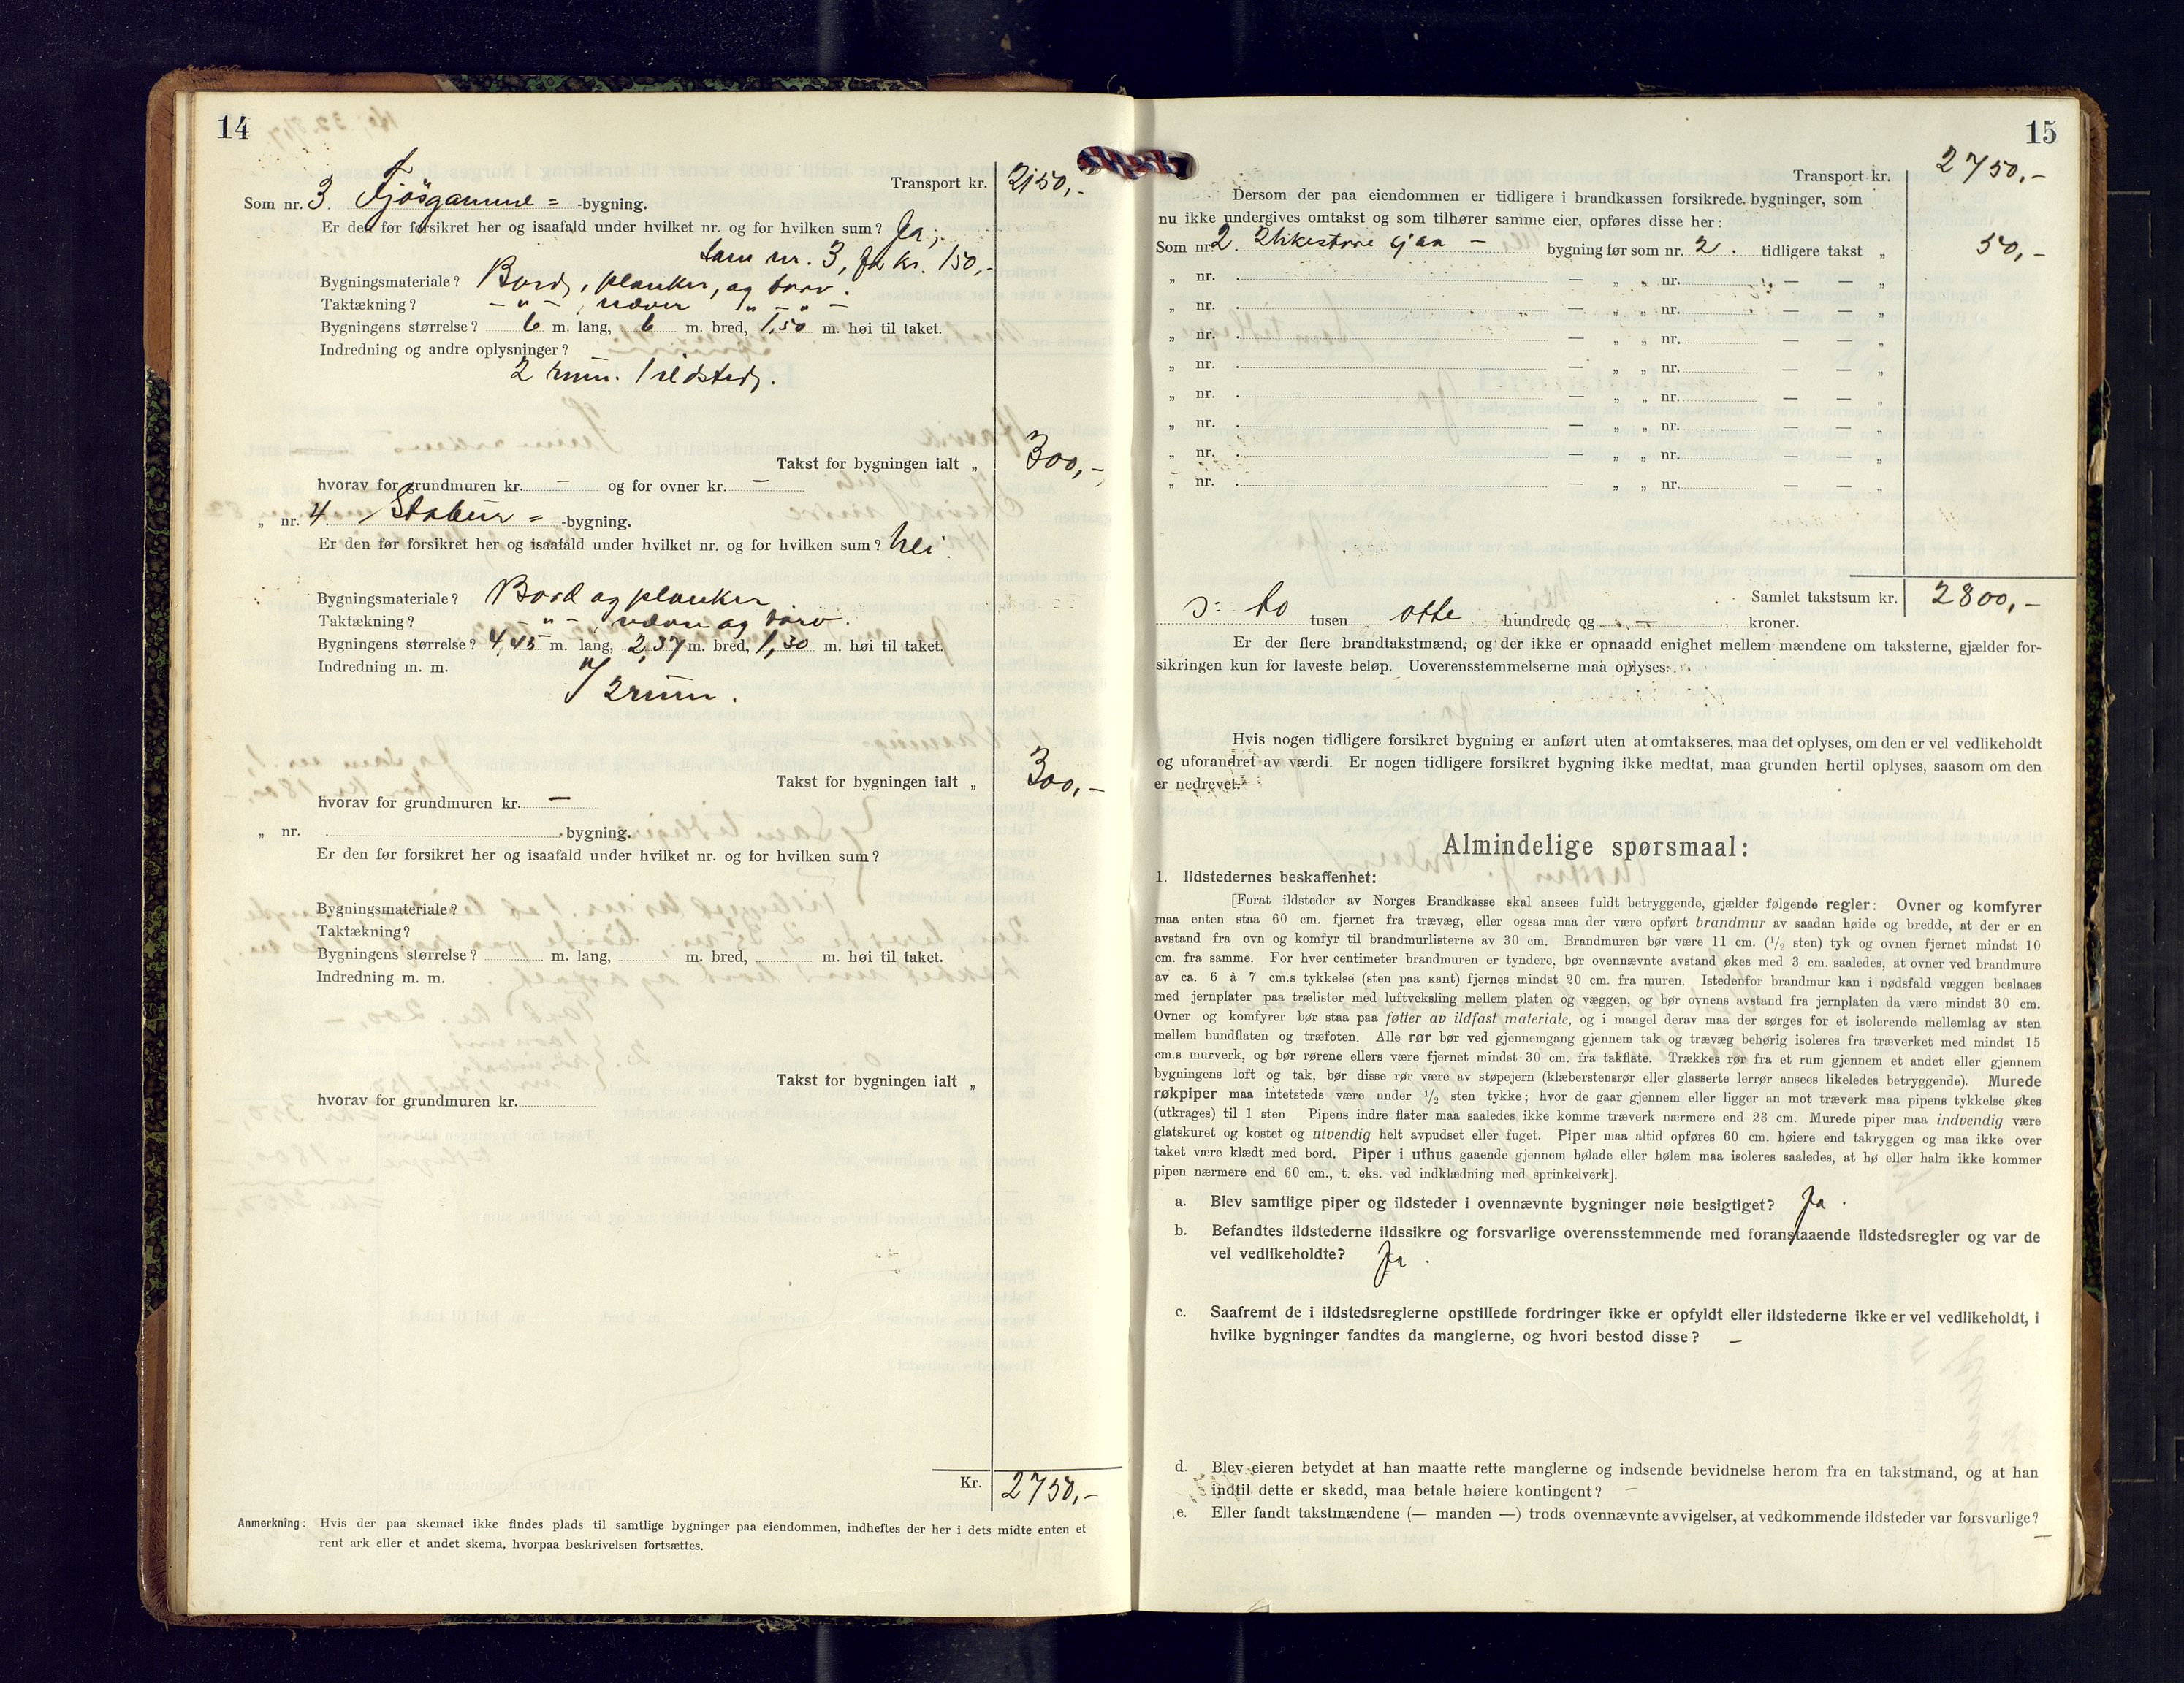 14
Transport kr. 2150,-
Som nr. 3. Fjösgamme = -bygning.
Er den før forsikret her og isaafald under hvilket nr. og for hvilken sum? Ja,
som nr. 3, for kr. 150,-
Bygningsmateriale? Bord, planker, og torv.
Taktækning? -"-, næver -"-"-
Bygningens størrelse? 6 m. lang, 6 m. bred, 1,50 m. høi til taket.
Indredning og andre oplysninger?
2 rum. 1 ildsted.
Takst for bygningen ialt „ 300,-
hvorav for grundmuren kr. — og for ovner kr. —
„ nr. 4. Stabur = -bygning.
Er den før forsikret her og isaafald under hvilket nr. og for hvilken sum? Nei.
Bygningsmateriale? Bord og planker.
Taktækning? -"-, næver og torv.
Bygningens størrelse? 4,45 m. lang, 2,37 m. bred, 1,30 m. høi til taket.
Indredning m. m.
2 rum.
Takst for bygningen ialt „ 300,-
hvorav for grundmuren kr. —
„ nr. -bygning.
Er den før forsikret her og isaafald under hvilket nr. og for hvilken sum?
Bygningsmateriale?
Taktækning?
Bygningens størrelse? m. lang, m. bred, m. høi til taket.
Indredning m. m.
Takst for bygningen ialt „
hvorav for grundmuren kr.
Kr. 2750,-
Anmerkning: Hvis der paa skemaet ikke findes plads til samtlige bygninger paa eiendommen, indheftes der her i dets midte enten et
rent ark eller et andet skema, hvorpaa beskrivelsen fortsættes.
15
Transport kr. 2750,-
Dersom der paa eiendommen er tidligere i brandkassen forsikrede bygninger, som
nu ikke undergives omtakst og som tilhører samme eier, opføres disse her:
Som nr. 2. — bygning før som nr. 2. tidligere takst „ 50,-
„ nr. — „ „ nr. — — „
„ nr. — „ „ nr. — — „
„ nr. — „ „ nr. — — „
„ nr. — „ „ nr. — — „
„ nr. — „ „ nr. — — „
„ nr. — „ „ nr. — — „
„ nr. — „ „ nr. — — „
„ nr. — „ „ nr. — — „
Samlet takstsum kr. 2800,-
ɔ: to tusen otte hundrede og — kroner.
Er der flere brandtakstmænd, og der ikke er opnaadd enighet mellem mændene om taksterne, gjælder for-
sikringen kun for laveste beløp. Uoverensstemmelserne maa oplyses:
Hvis nogen tidligere forsikret bygning er anført uten at omtakseres, maa det oplyses, om den er vel vedlikeholdt
og uforandret av værdi. Er nogen tidligere forsikret bygning ikke medtat, maa grunden hertil oplyses, saasom om den
er nedrevet.
Almindelige spørsmaal:
1. Ildstedernes beskaffenhet:
[Forat ildsteder av Norges Brandkasse skal ansees fuldt betryggende, gjælder følgende regler: Ovner og komfyrer
maa enten staa 60 cm. fjernet fra trævæg, eller ogsaa maa der være opført brandmur av saadan høide og bredde, at der er en
avstand fra ovn og komfyr til brandmurlisterne av 30 cm. Brandmuren bør være 11 cm. (1/2 sten) tyk og ovnen fjernet mindst 10
cm. fra samme. For hver centimeter brandmuren er tyndere, bør ovennævnte avstand økes med 3 cm. saaledes, at ovner ved brandmure
av ca. 6 à 7 cm.s tykkelse (sten paa kant) fjernes mindst 20 cm. fra muren. Istedenfor brandmur kan i nødsfald væggen beslaaes
med jernplater paa trælister med luftveksling mellem platen og væggen, og bør ovnens avstand fra jernplaten da være mindst 30 cm.
Ovner og komfyrer bør staa paa føtter av ildfast materiale, og i mangel derav maa der sørges for et isolerende mellemlag av sten
mellem bundflaten og træfoten. Alle rør bør ved gjennemgang gjennem tak og trævæg behørig isoleres fra træverket med mindst 15
cm.s murverk, og bør rørene ellers være fjernet mindst 30 cm. fra takflate. Trækkes rør fra et rum gjennem et andet eller gjennem
bygningens loft og tak, bør disse rør være av støpejern (klæberstensrør eller glasserte lerrør ansees likeledes betryggende). Murede
røkpiper maa intetsteds være under 1/2 sten tykke; hvor de gaar gjennem eller ligger an mot træverk maa pipens tykkelse økes
(utkrages) til 1 sten Pipens indre flater maa saaledes ikke komme træverk nærmere end 23 cm. Murede piper maa indvendig være
glatskuret og kostet og utvendig helt avpudset eller fuget. Piper maa altid opføres 60 cm. høiere end takryggen og maa ikke over
taket være klædt med bord. Piper i uthus gaaende gjennem hølade eller hølem maa isoleres saaledes, at hø eller halm ikke kommer
pipen nærmere end 60 cm., t. eks. ved indklædning med sprinkelverk].
a. Blev samtlige piper og ildsteder i ovennævnte bygninger nøie besigtiget? Ja.
b. Befandtes ildstederne ildssikre og forsvarlige overensstemmende med foranstaaende ildstedsregler og var de
vel vedlikeholdte? Ja.
c. Saafremt de i ildstedsreglerne opstillede fordringer ikke er opfyldt eller ildstederne ikke er vel vedlikeholdt, i
hvilke bygninger fandtes da manglerne, og hvori bestod disse? —
d. Blev eieren betydet at han maatte rette manglerne og indsende bevidnelse herom fra en takstmand, og at han
indtil dette er skedd, maa betale høiere kontingent? —
e. Eller fandt takstmændene (— manden —) trods ovennævnte avvigelser, at vedkommende ildsteder var forsvarlige?
—